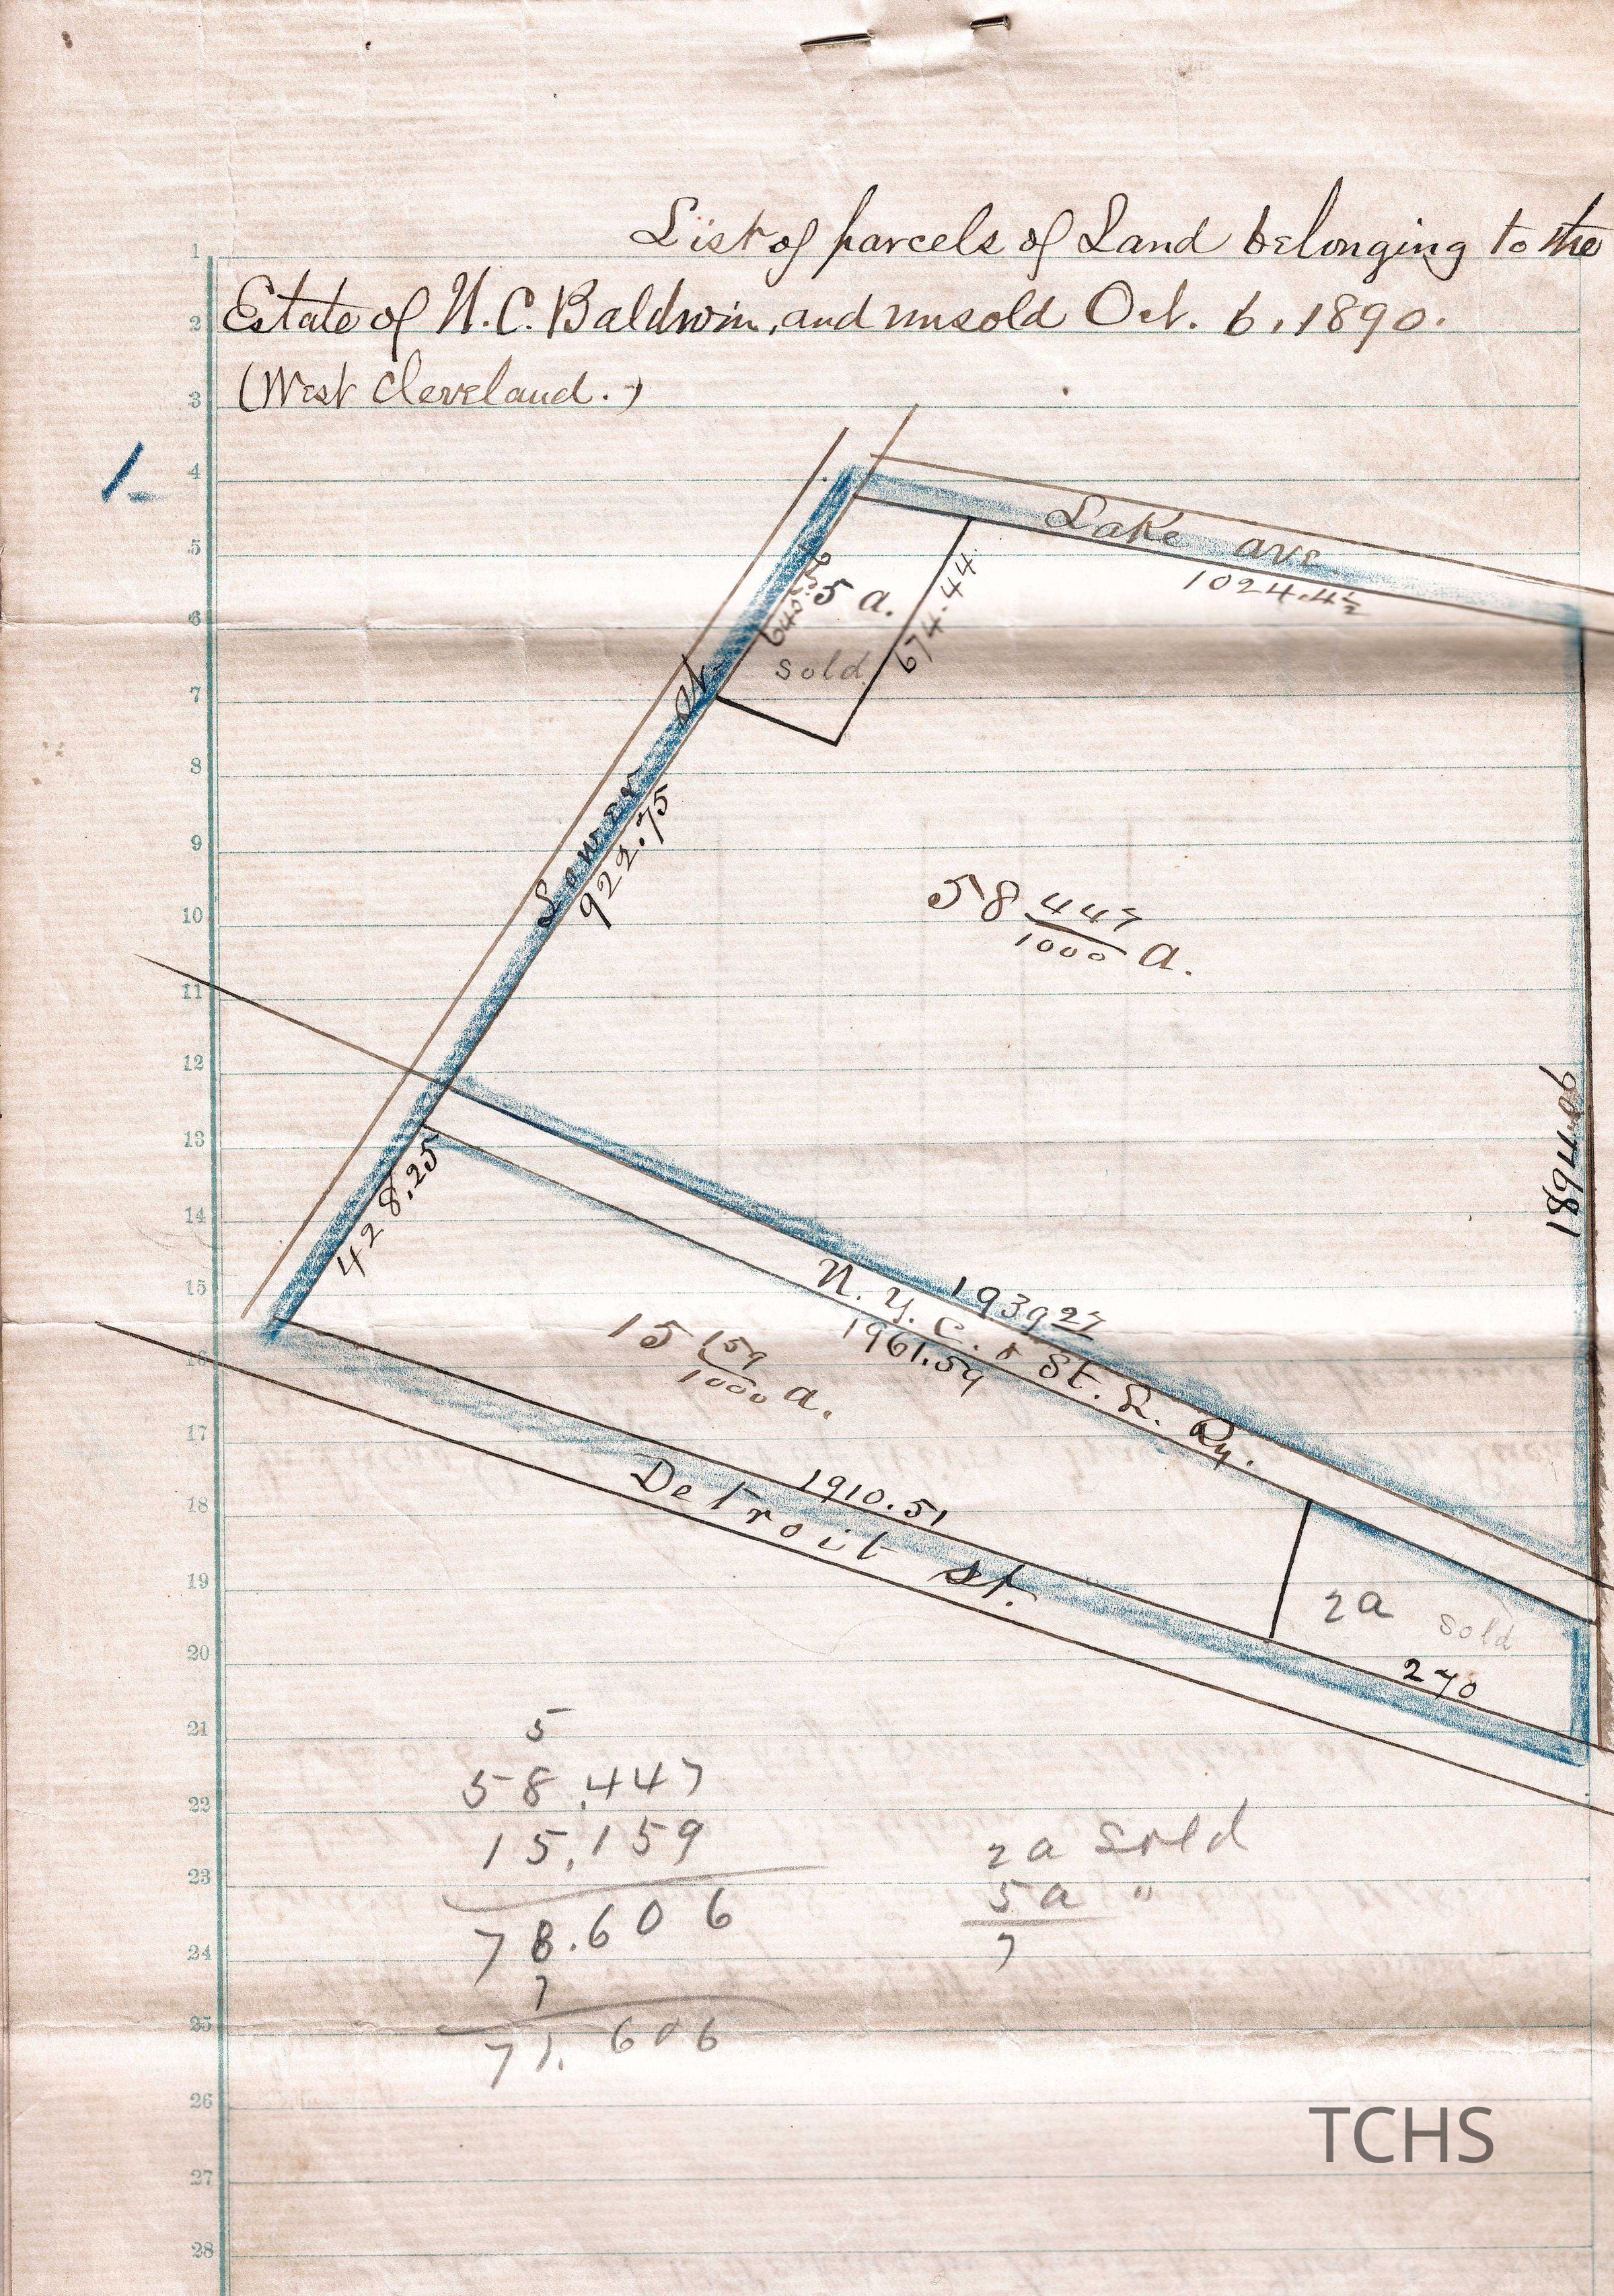 List of parcels of Land belonging to the
Estate of N. C. Baldwin, and unsold Oct. 6, 1890.
(West Cleveland.)
1.
Lake ave.
1024.4½
5 a.
sold
674.44
St.
922.75
58 447/1000 a.
1894.06
428.25
1939 27
N. Y. C. & St. L. Ry.
1961.59
15 159/1000 a.
1910.51
Detroit St.
2a sold
270
5
58,447
15,159
78.606
7
71.606
2a Sold
5a "
7
1
2
3
4
5
6
7
8
9
10
11
12
13
14
15
16
17
18
19
20
21
22
23
24
25
26
27
28
TCHS